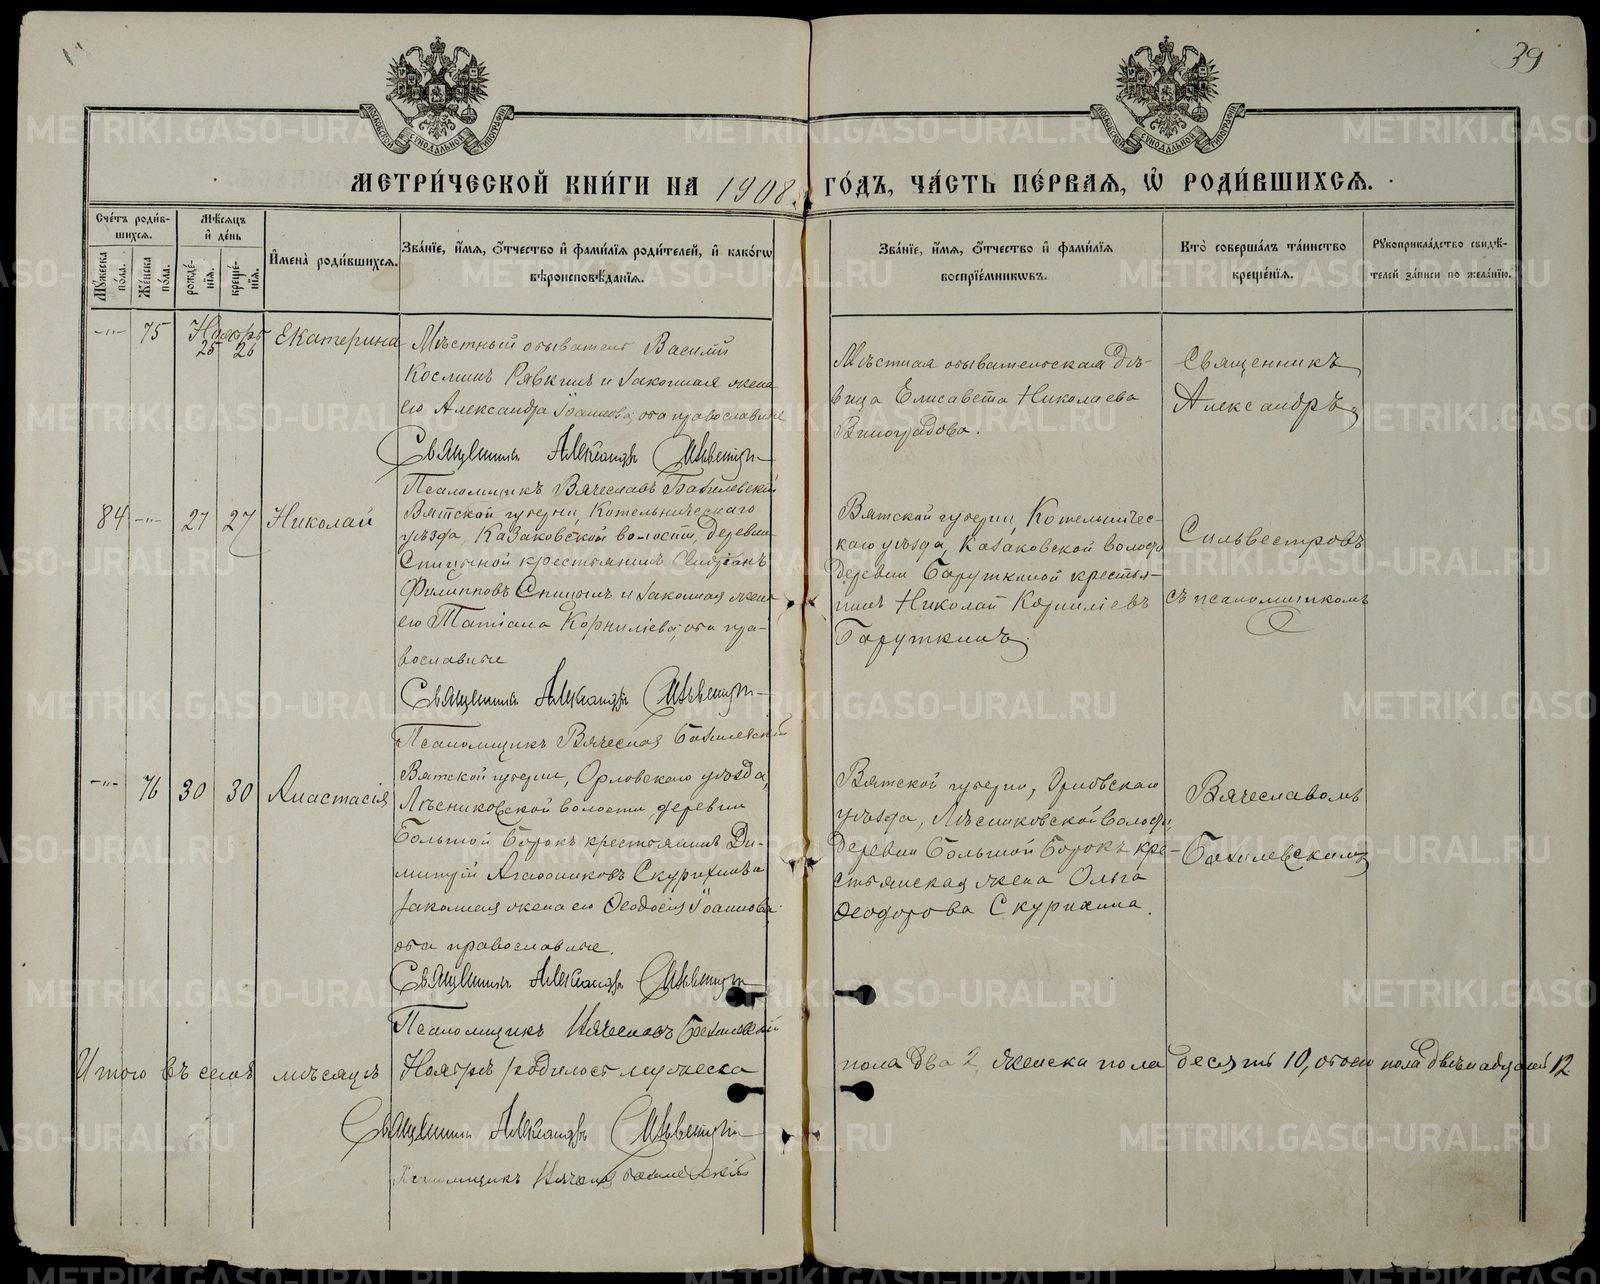 39
МОСКОВСКОЙ СѴНОДАЛЬНОЙ ТИПОГРАФІИ
МОСКОВСКОЙ СѴНОДАЛЬНОЙ ТИПОГРАФІИ
МЕТРИ́ЧЕСКОЙ КНИ́ГИ НА 1908 ГО́ДЪ, ЧА́СТЬ ПЕ́РВАЯ, Ѡ҆ РОДИ́ВШИХСЯ.
Сче́тъ роди́вшихся.
Му́жеска по́ла.
Же́нска по́ла.
Мѣ́сяцъ и҆ де́нь
рожде́нїя.
креще́нїя.
И҆мена̀ роди́вшихся.
Зва́нїе, и҆́мя, ѻ҆́тчество и҆ фами́лїя роди́телей, и҆ како́гѡ вѣроисповѣ́данїя.
Зва́нїе, и҆́мя, ѻ҆́тчество и҆ фами́лїя воспрїе́мниковъ.
Кто̀ соверша́лъ та́инство креще́нїя.
Рукоприкла́дство свидѣ́телей за́писи по жела́нїю.
-"- 75 Ноябрь 25 26 Екатерина
Мѣстный обыватель Василій
Косминъ Рявкинъ и законная жена
его Александра Іоаннова, оба православные
Священникъ Александръ Сильвестровъ
Псаломщикъ Вячеславъ Бахилевскій
Мѣстная обывательская дѣ-
вица Елисавета Николаева
Виноградова.
Священникъ
Александръ
84 -"- 27 27 Николай
Вятской губерніи, Котельническаго
уѣзда, Казаковской волости, деревни
Спицыной крестьянинъ
Филипповъ Спицынъ и законная жена
его Татіана Корниліева, оба пра-
вославные
Священникъ Александръ Сильвестровъ
Псаломщикъ Вячеславъ Бахилевскій
Вятской губерніи, Котельничес-
каго уѣзда, Казаковской волости
деревни Баруткиной крестья-
нинъ Николай Корниліевъ
Баруткинъ.
Сильвестровъ
съ псаломщикомъ
-"- 76 30 30 Анастасія
Вятской губерніи, Орловскаго уѣзда,
Лѣсниковской волости, деревни
Большой Борокъ крестьянинъ Ди-
митрій Агафониковъ Скурихинъ и
законная жена его Ѳеодосія Іоаннова
оба православные.
Священникъ Александръ Сильвестровъ
Псаломщикъ Вячеславъ Бахилевскій
Вятской губерніи, Орловскаго
уѣзда, Лѣсниковской волости,
деревни Большой Борокъ кре-
стьянская жена Ольга
Ѳеодорова Скурихина.
Вячеславомъ
Бахилевскимъ
Итого въ семъ мѣсяцѣ Ноябрѣ родилось мужеска пола два 2, женска пола десять 10, обоего пола двѣнадцать 12
Священникъ Александръ Сильвестровъ
Псаломщикъ Вячеславъ Бахилевскій
METRIKI.GASO-URAL.RU